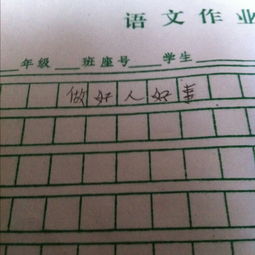 语文作业
年级 班座号 学生
做好人好事